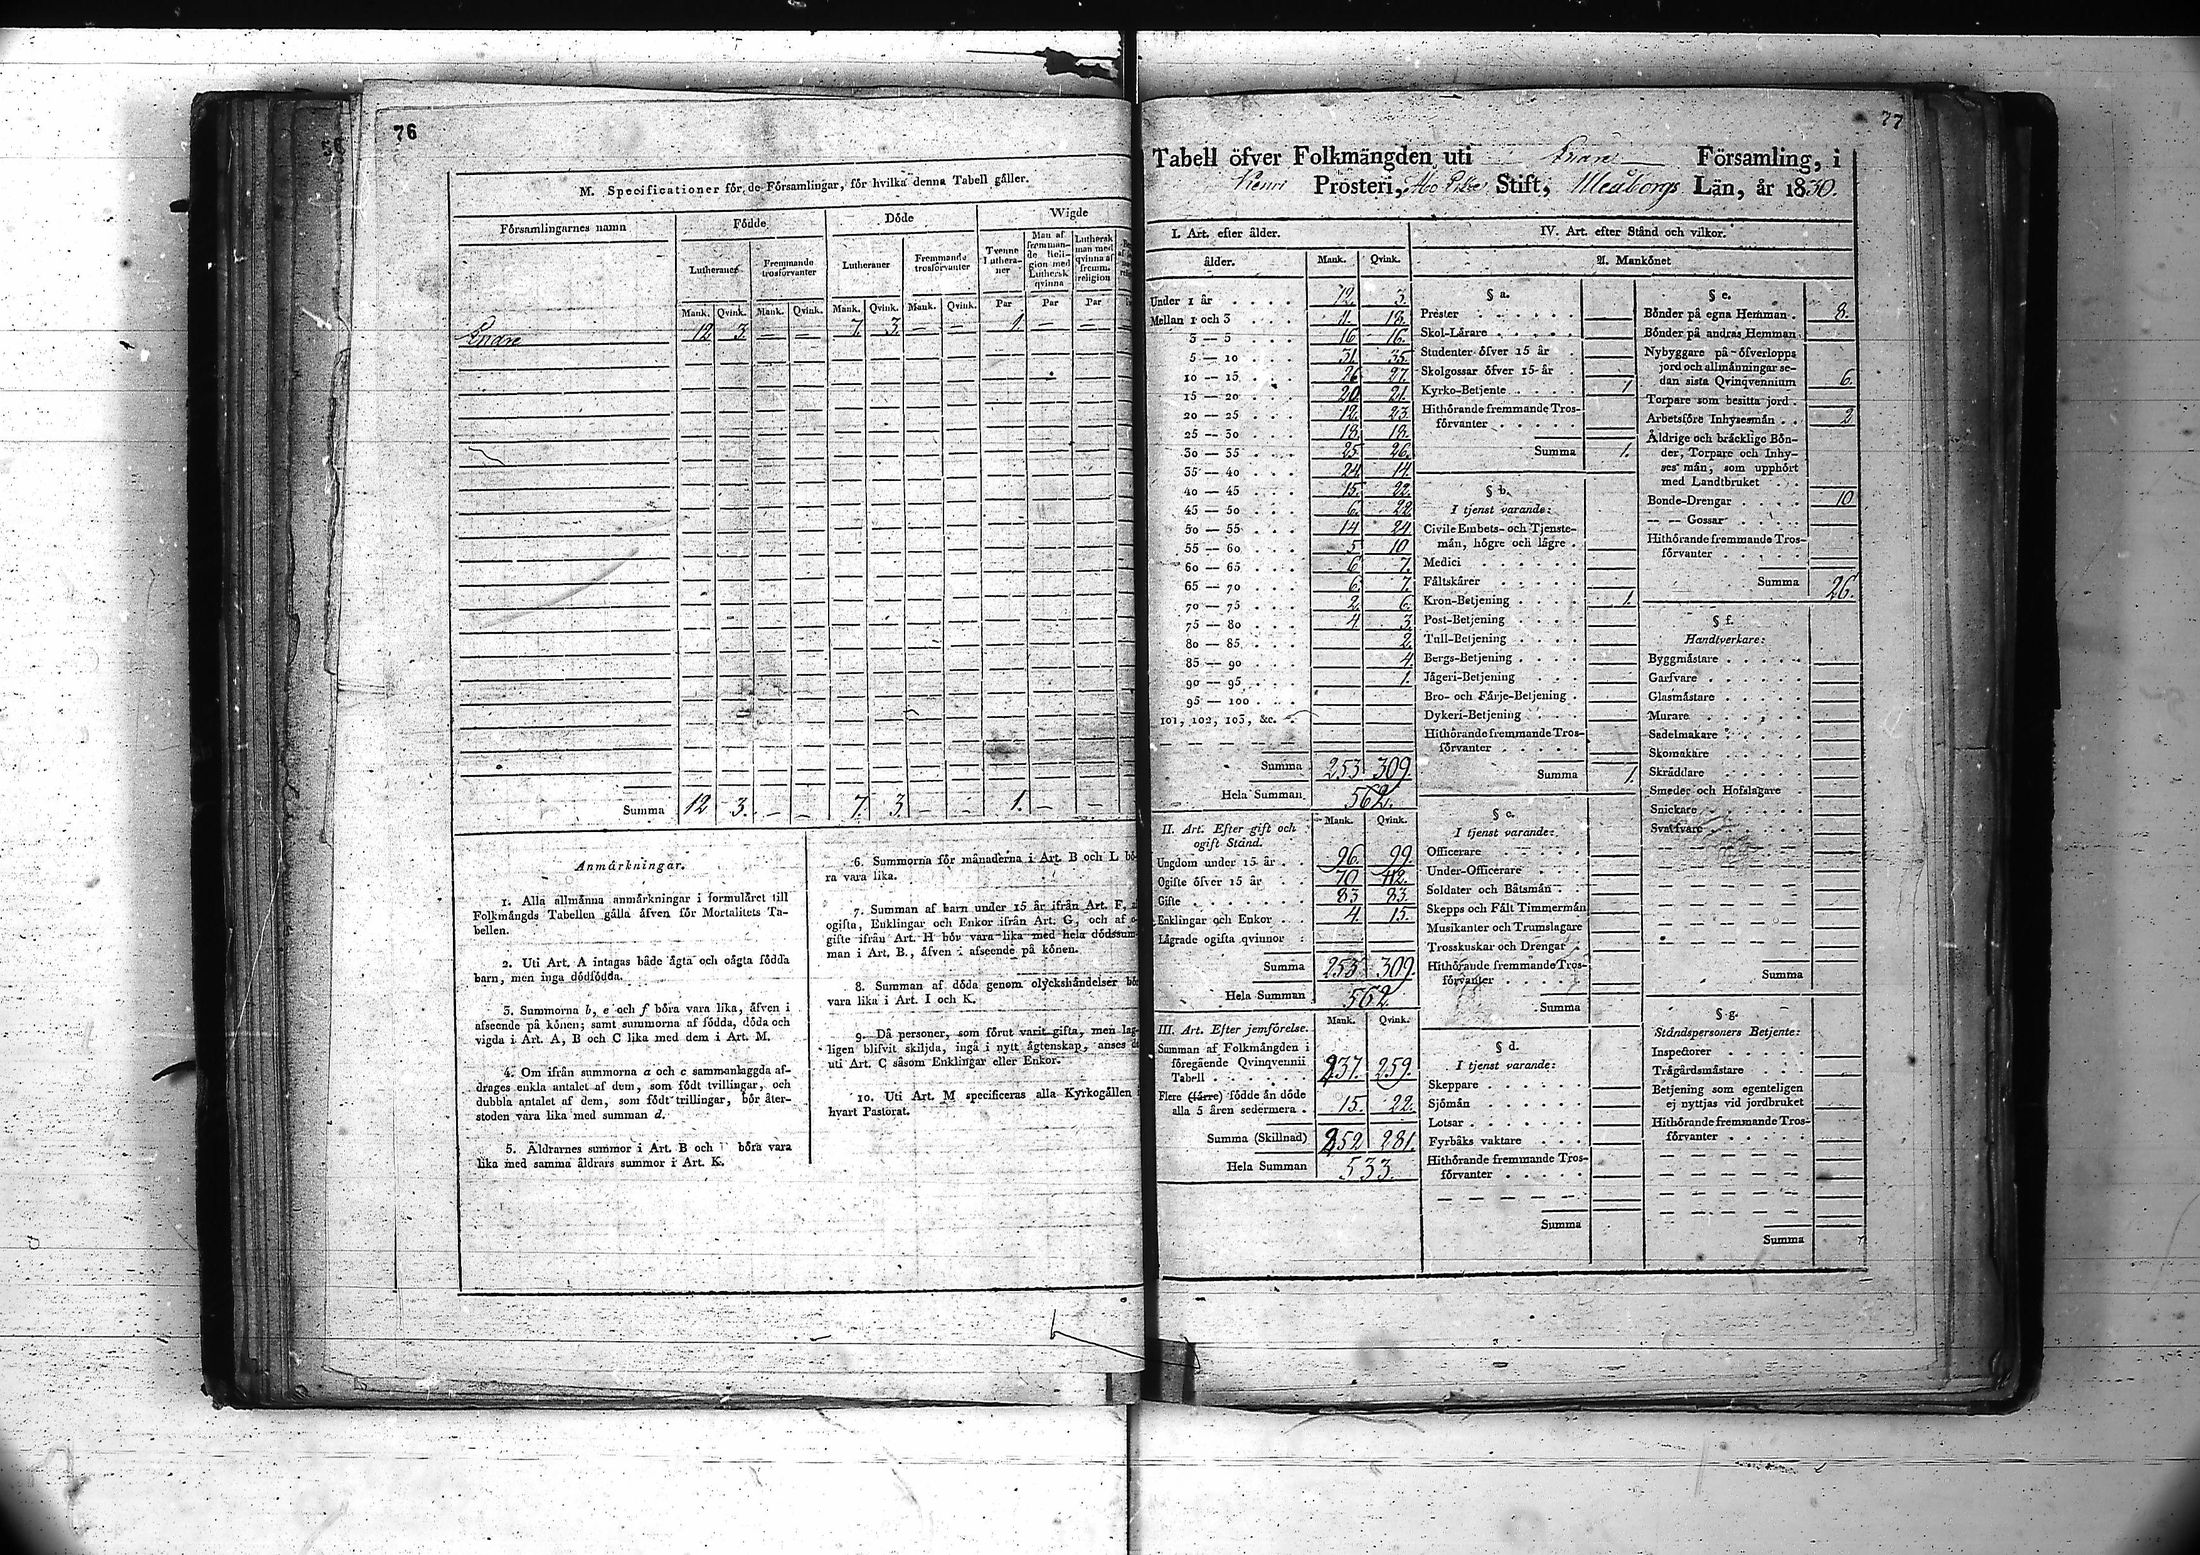 76
M. Specificationer för de Församlingar, för hvilka denna Tabell gäller.
Församlingarnes namn
Födde
Döde
Wigde
Lutheraner
Fremmande trosförvanter
Lutheraner
Fremmande trosförvanter
Tvenne Lutheraner
Man af fremmande Religion med Luthersk qvinna
Luthersk man med qvinna af fremm. religion
Mank. Qvink. Mank. Qvink. Mank. Qvink. Mank. Qvink. Par Par Par
Enare 12 3. — — 7. 3. — — 1. — — —
Summa 12 3. — — 7. 3. — — 1. — —
Anmärkningar.
1. Alla allmänna anmärkningar i formuläret till
Folkmängds Tabellen gälla äfven för Mortalitets Ta-
bellen.
2. Uti Art. A intagas både ägta och oägta födda
barn, men inga dödfödda.
3. Summorna b, e och f böra vara lika, äfven i
afseende på könen; samt summorna af födda, döda och
vigda i Art. A, B och C lika med dem i Art. M.
4. Om ifrån summorna a och c sammanlaggda af-
drages enkla antalet af dem, som födt tvillingar, och
dubbla antalet af dem, som födt trillingar, bör åter-
stoden vara lika med summan d.
5. Åldrarnes summor i Art. B och böra vara
lika med samma åldrars summor i Art. K.
6. Summorna för månaderna i Art. B och L bö-
ra vara lika.
7. Summan af barn under 15 år ifrån Art. F,
ogifta, Enklingar och Enkor ifrån Art. G, och af o-
gifte ifrån Art. H bör vara lika med hela dödssum-
man i Art. B., äfven i afseende på könen.
8. Summan af döda genom olyckshändelser bör
vara lika i Art. I och K.
9. Då personer, som förut varit gifta, men lag-
ligen blifvit skiljda, ingå i nytt ägtenskap, anses de
uti Art. C såsom Enklingar eller Enkor.
10. Uti Art. M specificeras alla Kyrkogällen i
hvart Pastorat.
77
Tabell öfver Folkmängden uti Enare Församling, i
Kiemi Prosteri, Åbo Stift, Uleåborgs Län, år 1830.
I. Art. efter ålder.
ålder. Mank. Qvink.
Under 1 år 12. 3.
Mellan 1 och 3 11. 18.
3 — 5 16 16.
5 — 10 31. 35.
10 — 15 26 27.
15 — 20 20 21.
20 — 25 12. 23.
25 — 30 18. 18.
30 — 35 25 26.
35 — 40 24 14.
40 — 45 15. 22.
45 — 50 6. 22
50 — 55 14 24
55 — 60 5 10
60 — 65 6 7.
65 — 70 6. 7.
70 — 75 2. 6.
75 — 80 4. 3.
80 — 85 2.
85 — 90 4.
90 — 95 1.
95 — 100
101, 102, 103, &c.
Summa 253 309.
Hela Summan 562.
II. Art. Efter gift och ogift Stånd. Mank. Qvink.
Ungdom under 15 år 96. 99.
Ogifte öfver 15 år 70 112.
Gifte 83 83.
Enklingar och Enkor 4. 15.
Lägrade ogifta qvinnor
Summa 253 309.
Hela Summan 562.
III. Art. Efter jemförelse. Mank. Qvink.
Summan af Folkmängden i
föregående Qvinqvennii
Tabell 237. 259.
Flere (färre) födde än döde
alla 5 åren sedermera 15. 22.
Summa (Skillnad) 252 281.
Hela Summan 533.
IV. Art. efter Stånd och vilkor.
A. Mankönet
§ a.
Prester
Skol-Lärare
Studenter öfver 15 år
Skolgossar öfver 15 år
Kyrko-Betjente 1
Hithörande fremmande Tros-
förvanter
Summa 1.
§ b.
I tjenst varande:
Civile Embets- och Tjenste-
män, högre och lägre
Medici
Fältskärer
Kron-Betjening 1.
Post-Betjening
Tull-Betjening
Bergs-Betjening
Jägeri-Betjening
Bro- och Färje-Betjening
Dykeri-Betjening
Hithörande fremmande Tros-
förvanter
Summa 1.
§ c.
I tjenst varande:
Officerare
Under-Officerare
Soldater och Båtsmän
Skepps och Fält Timmermän
Musikanter och Trumslagare
Trosskuskar och Drengar
Hithörande fremmande Tros-
förvanter
Summa
§ d.
I tjenst varande:
Skeppare
Sjömän
Lotsar
Fyrbåks vaktare
Hithörande fremmande Tros-
förvanter
Summa
§ e.
Bönder på egna Hemman 8.
Bönder på andras Hemman
Nybyggare på öfverlopps
jord och allmänningar se-
dan sista Qvinqvennium 6.
Torpare som besitta jord
Arbetsföre Inhysesmän 2
Åldrige och bräcklige Bön-
der, Torpare och Inhy-
ses män, som upphört
med Landtbruket
Bonde-Drengar 10
— — Gossar
Hithörande fremmande Tros-
förvanter
Summa 26.
§ f.
Handtverkare:
Byggmästare
Garfvare
Glasmästare
Murare
Sadelmakare
Skomakare
Skräddare
Smeder och Hofslagare
Snickare
Svarfvare
Summa
§ g.
Ståndspersoners Betjente:
Inspector
Trägårdsmästare
Betjening som egenteligen
ej nyttjas vid jordbruket
Hithörande fremmande Tros-
förvanter
Summa